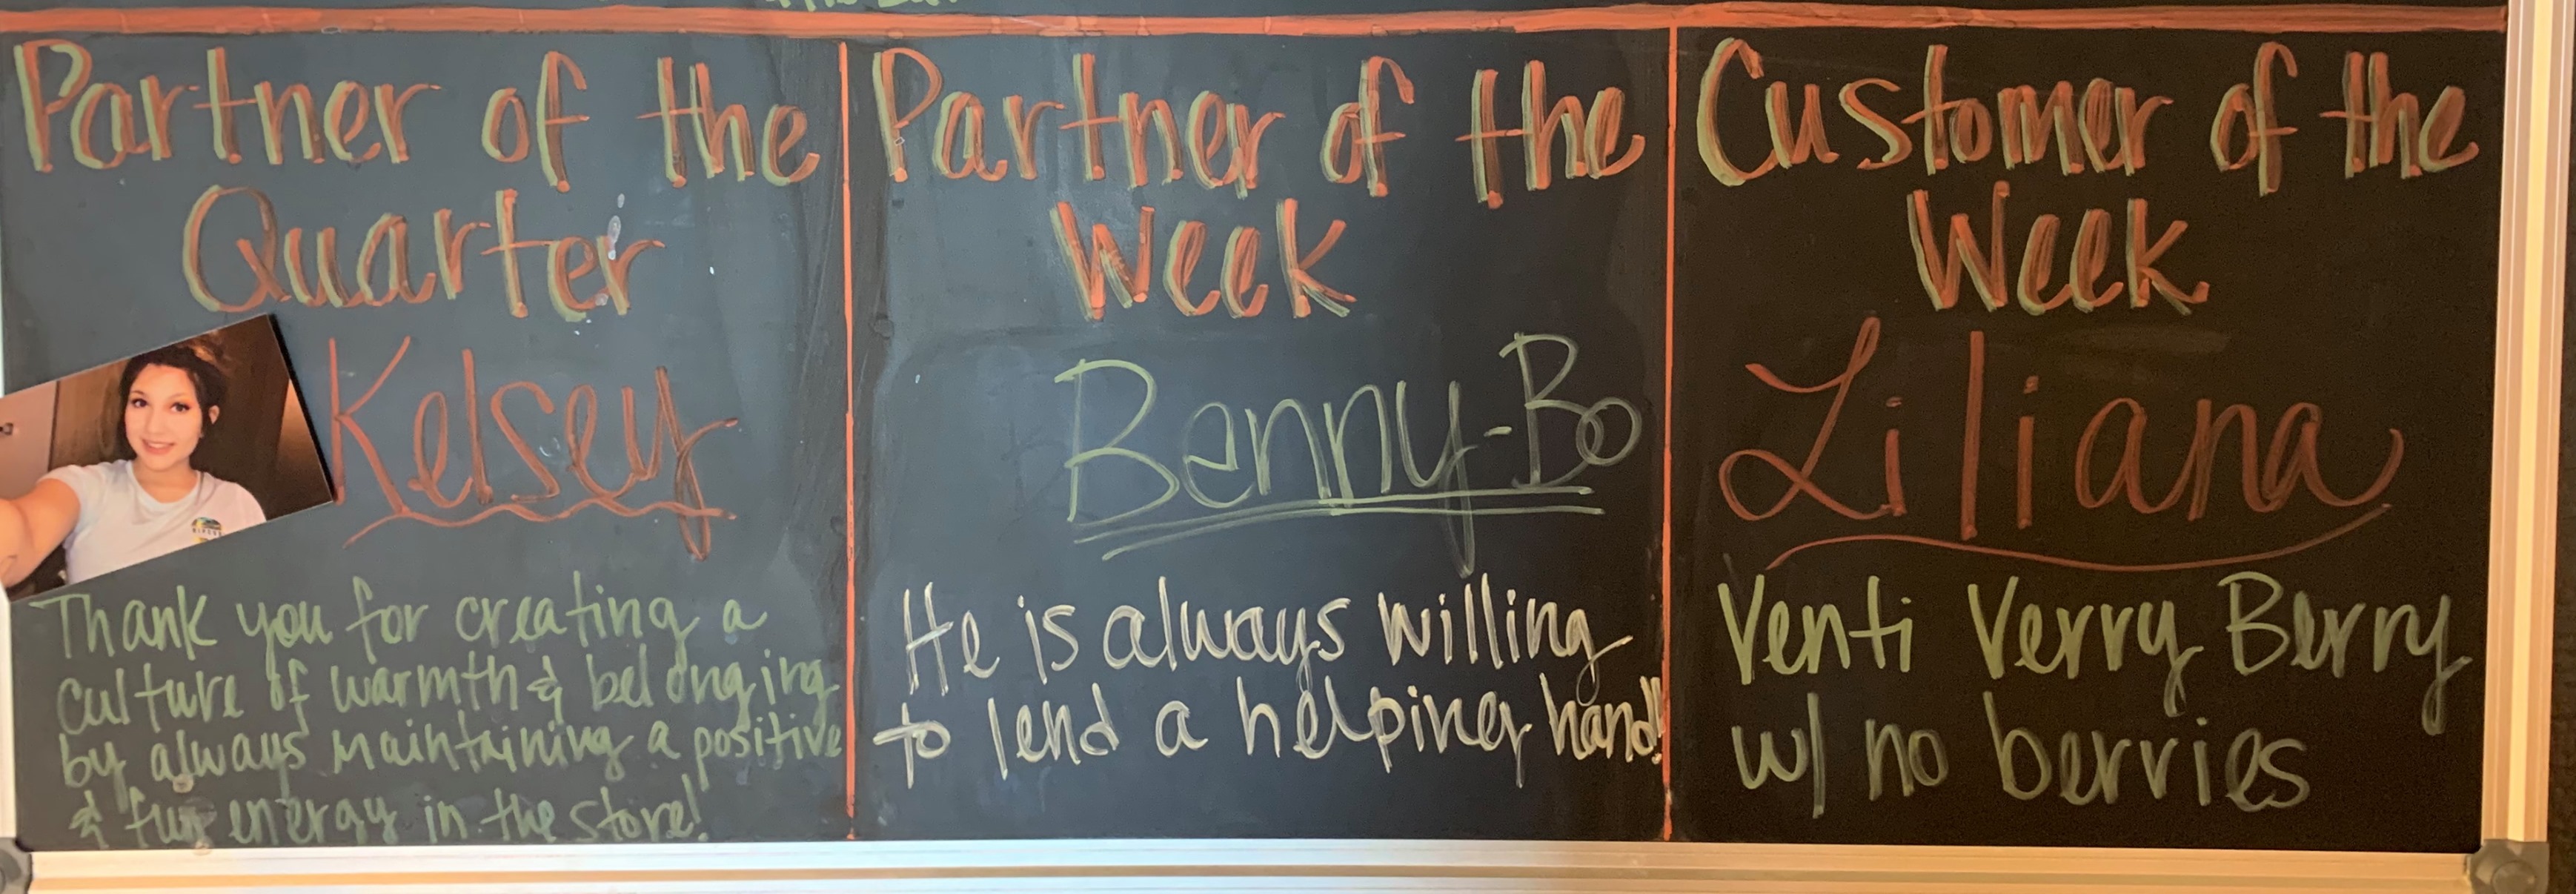 Partner of the
Quarter
Kelsey
Thank you for creating a
culture of warmth & belonging
by always maintaining a positive
& fun energy in the store!
Partner of the
Week
Benny-Bo
He is always willing
to lend a helping hand!
Customer of the
Week
Liliana
Venti Verry Berry
w/ no berries